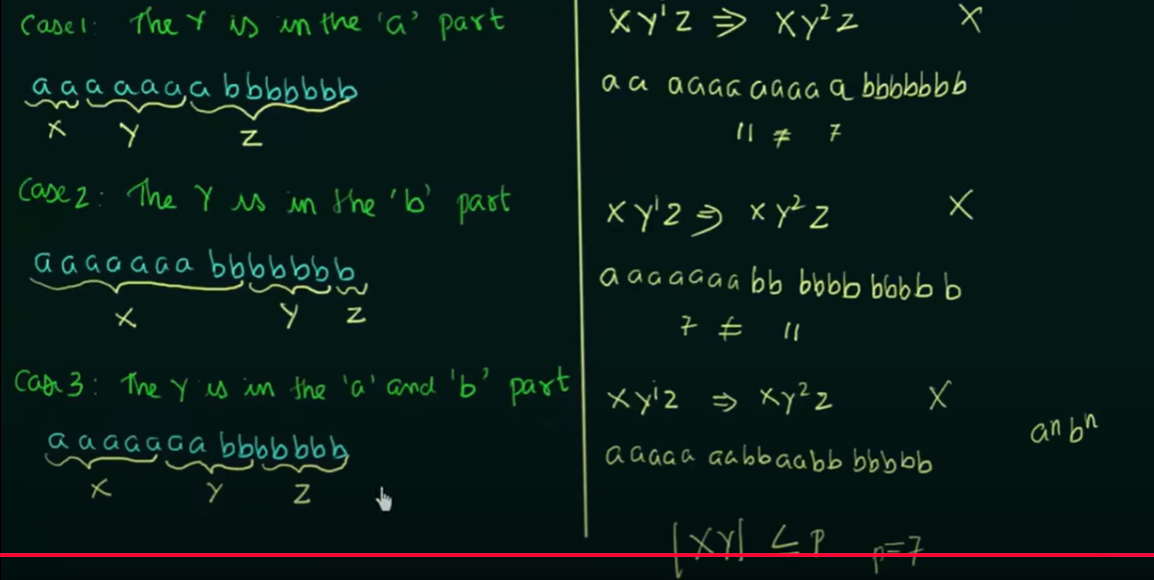 Case1: The Y is in the 'a' part
aaaaaaabbbbbbb
X Y Z
Case2: The Y is in the 'b' part
aaaaaaabbbbbbb
X Y Z
Case 3: The Y is in the 'a' and 'b' part
aaaaaaabbbbbbb
X Y Z
XYⁱZ ⇒ XY²Z X
aa aaaa aaaa a bbbbbbb
11 ≠ 7
XYⁱZ ⇒ XY²Z X
aaaaaaa bb bbbb bbbb b
7 ≠ 11
XYⁱZ ⇒ XY²Z X
aⁿbⁿ
aaaaa aabbaabb bbbbb
|XY| ≤ P P=7